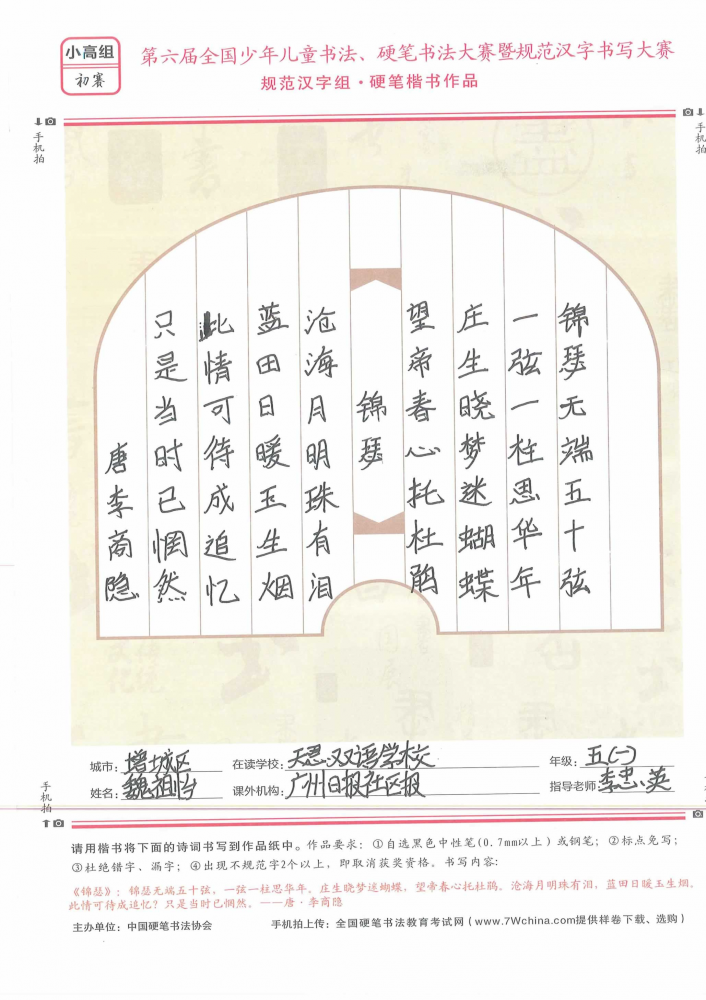 小高组
初赛
第六届全国少年儿童书法、硬笔书法大赛暨规范汉字书写大赛
规范汉字组·硬笔楷书作品
手机拍
手机拍
锦瑟无端五十弦
一弦一柱思华年
庄生晓梦迷蝴蝶
望帝春心托杜鹃
锦瑟
沧海月明珠有泪
蓝田日暖玉生烟
此情可待成追忆
只是当时已惘然
唐李商隐
城市：增城区 在读学校：天恩双语学校 年级：五(一)
姓名：魏 课外机构：广州日报社区报 指导老师 李忠英
手机拍
手机拍
请用楷书将下面的诗词书写到作品纸中。作品要求：①自选黑色中性笔(0.7mm以上)或钢笔；②标点免写；
③杜绝错字、漏字；④出现不规范字2个以上，即取消获奖资格。书写内容：
《锦瑟》：锦瑟无端五十弦，一弦一柱思华年。庄生晓梦迷蝴蝶，望帝春心托杜鹃。沧海月明珠有泪，蓝田日暖玉生烟。
此情可待成追忆？只是当时已惘然。——唐·李商隐
主办单位：中国硬笔书法协会 手机拍上传：全国硬笔书法教育考试网（www.7Wchina.com提供样卷下载、选购）